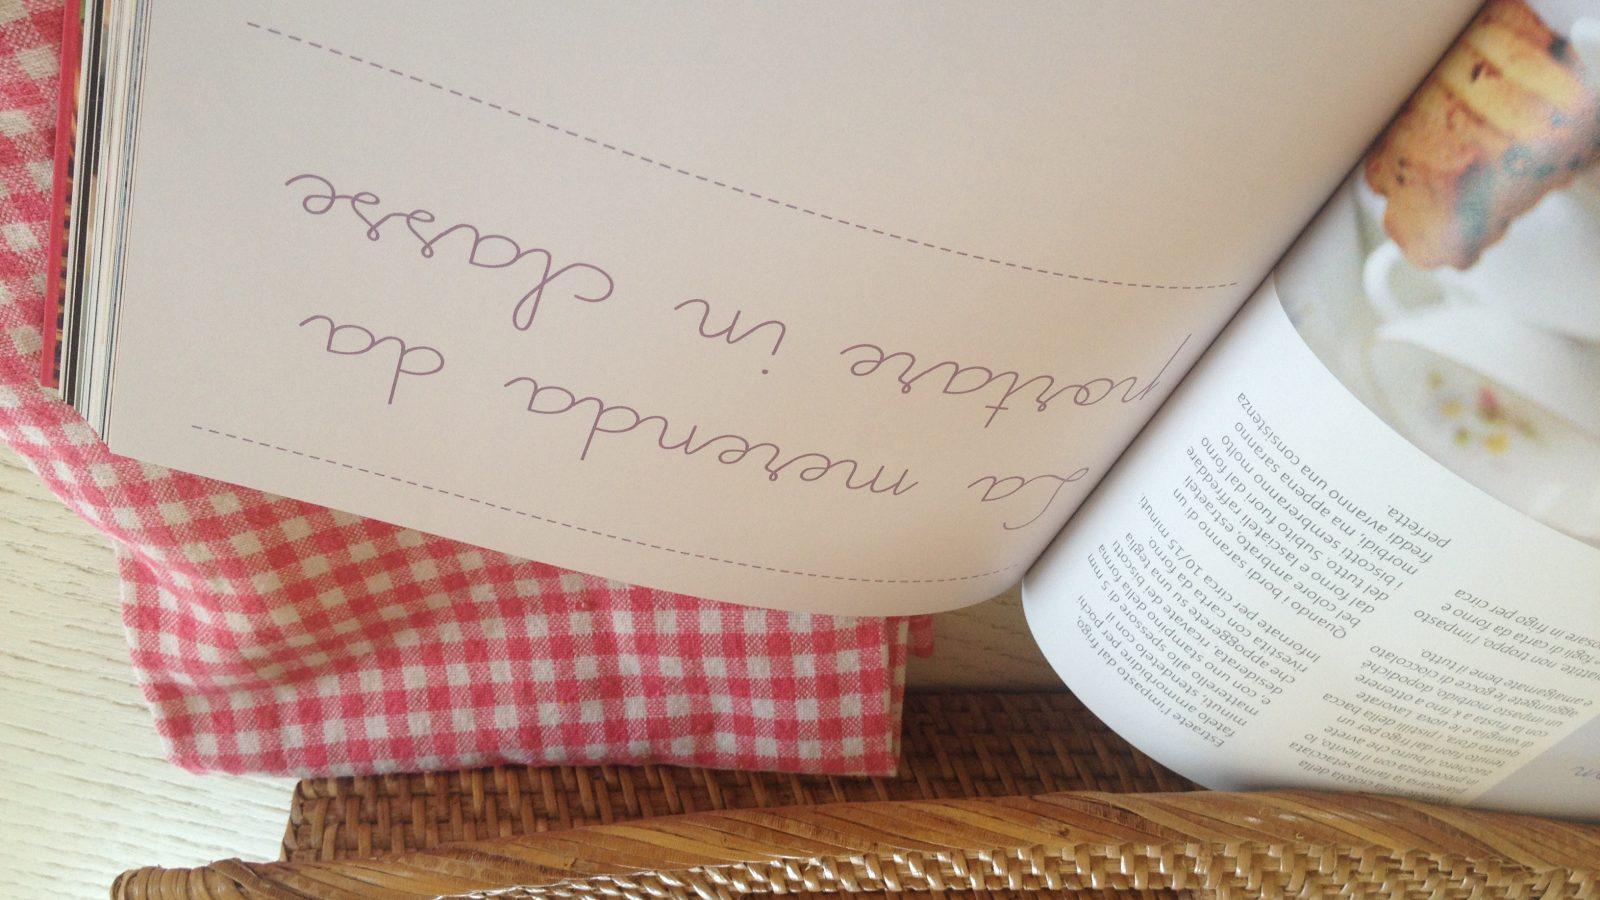 La merenda da
portare in classe
nella ciotola della
planetaria la farina setacciata
in precedenza con il lievito, lo
zuccheri, il burro che avrete
tenuto fuori dal frigo per un
quarto d'ora, i pistilli della bacca
di vaniglia e le uova. Lavorate
con la frusta a k fino a ottenere
un impasto morbido, dopodiché
aggiungete le gocce di cioccolato
e amalgamate bene il tutto.
non troppo, l'impasto
fogli di carta da forno e
in frigo per circa
Estraete l'impasto dal frigo,
fatelo ammorbidire per pochi
minuti, stendetelo con il
matterello allo spessore di 5 mm
e, con uno stampino della forma
desiderata, ricavate dei biscotti
che appoggerete su una teglia
rivestita con carta da forno.
Infornate per circa 10/15 minuti.
Quando i bordi saranno di un
bel colore ambrato, estraeteli
dal forno e lasciateli raffreddare
del tutto. Subito fuori dal forno
i biscotti sembreranno molto
morbidi, ma appena saranno
freddi, avranno una consistenza
perfetta.